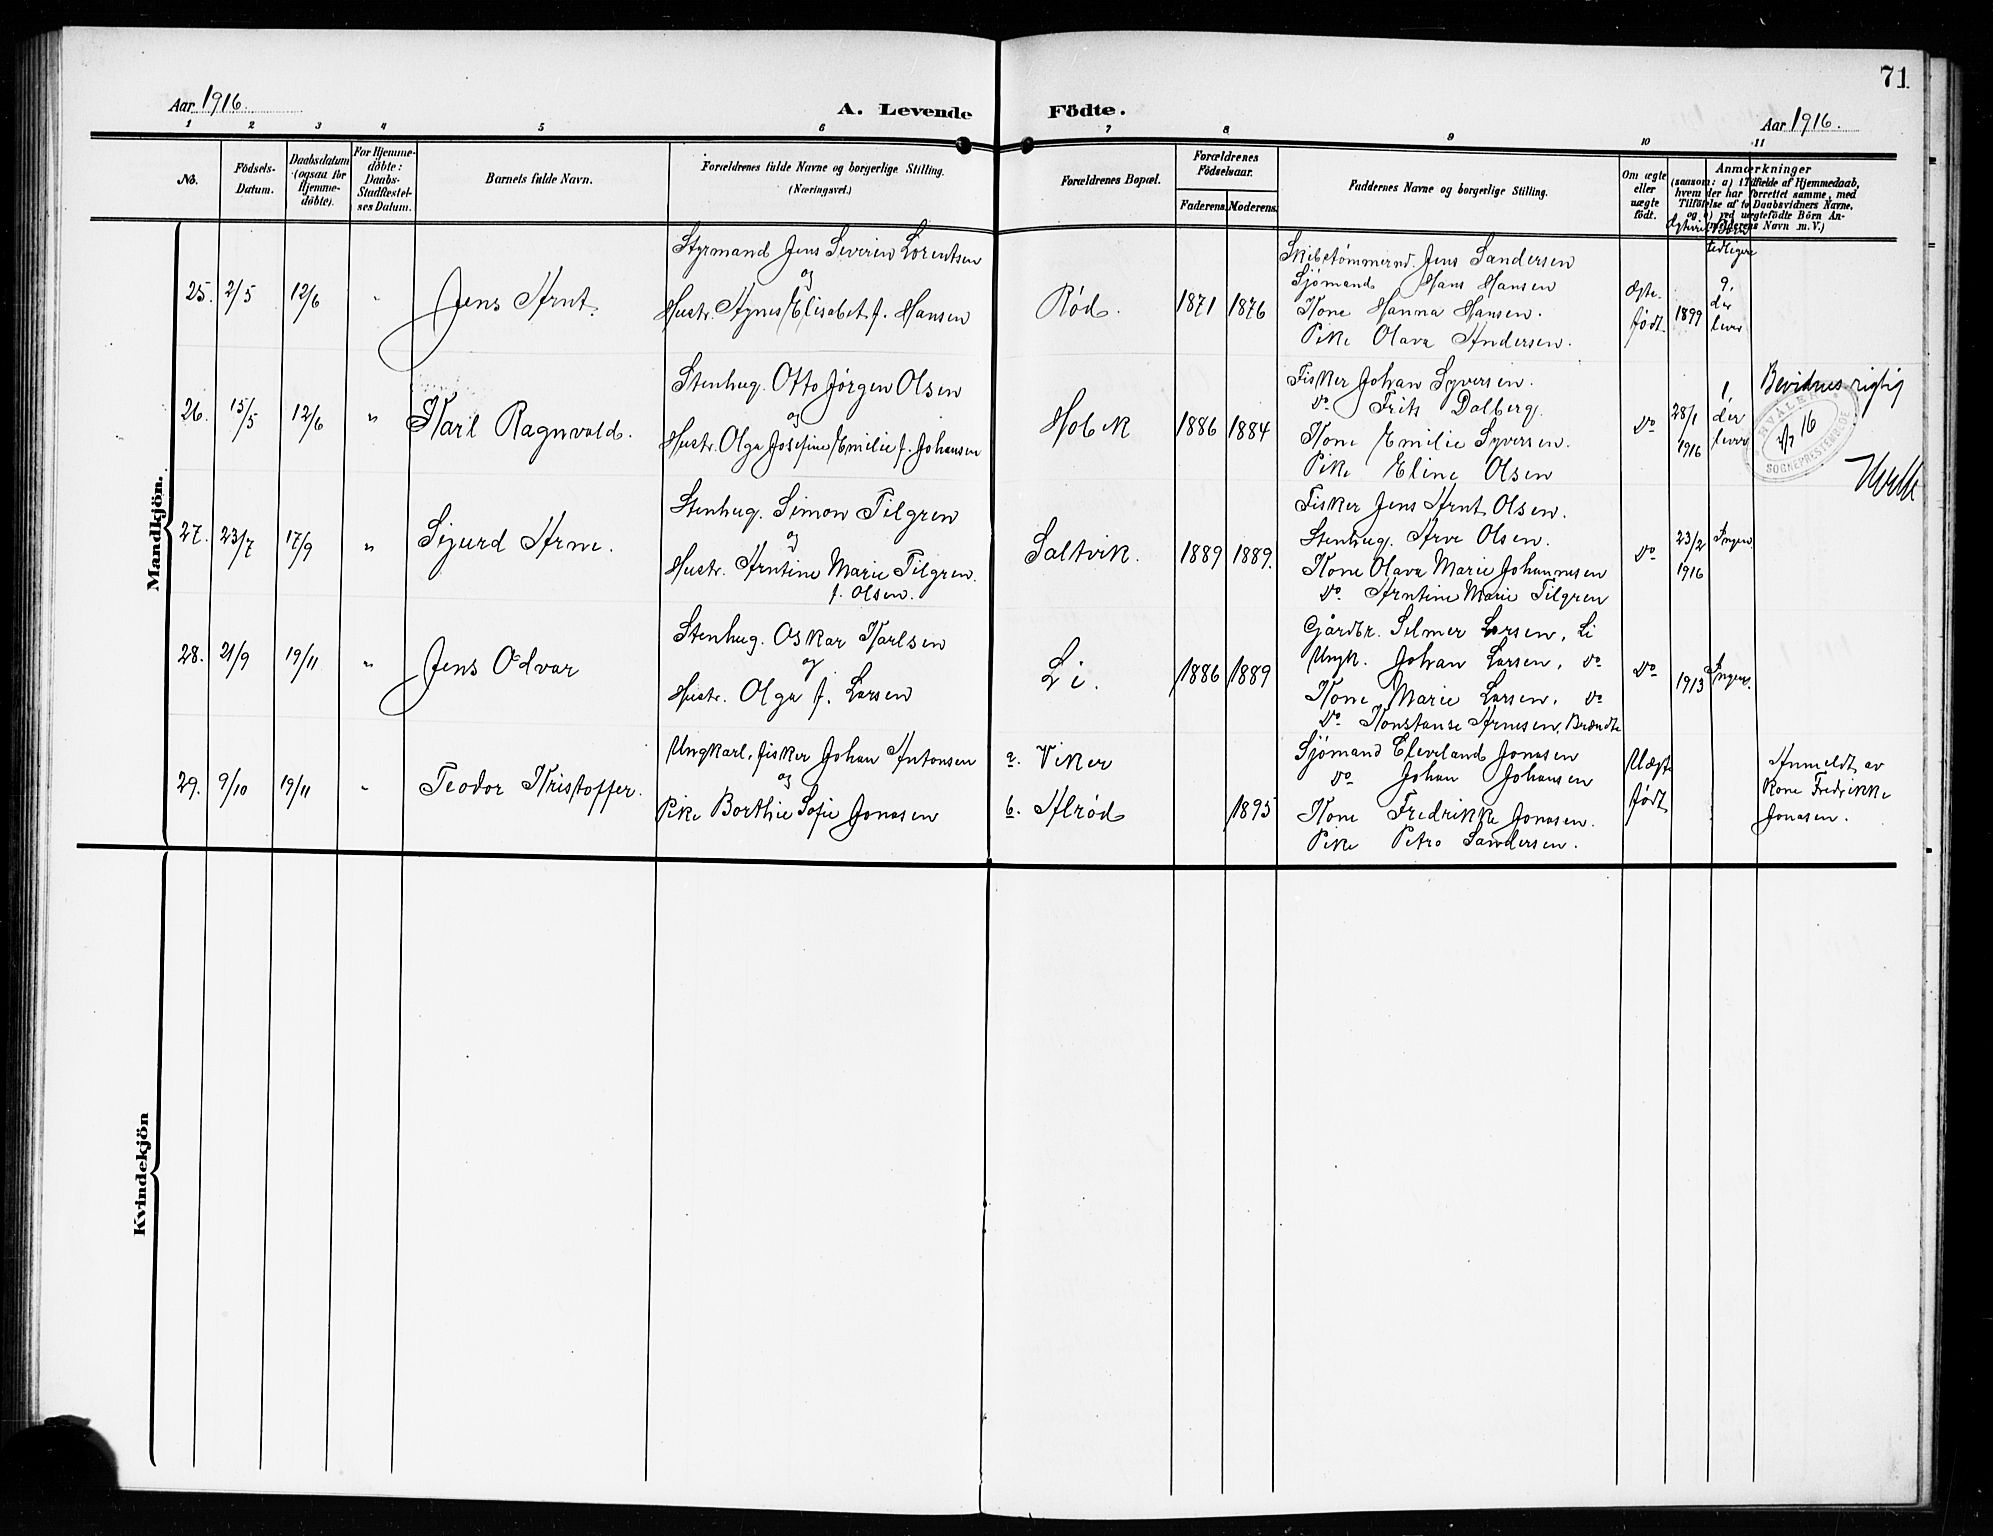 71
Aar 1916.
A. Levende Födte.
Aar 1916.
1 2 3 4 5 6 7 8 9 10 11
No.
Födsels-
Datum.
Daabsdatum
(ogsaa for
Hjemme-
döbte).
For Hjemme-
döbte:
Daabs-
Stadfæstel-
ses Datum.
Barnets fulde Navn.
Forældrenes fulde Navne og borgerlige Stilling.
(Næringsvei.)
Forældrenes Bopæl.
Forældrenes
Födselsaar.
Faderens.
Moderens.
Faddernes Navne og borgerlige Stilling.
Om ægte
eller
uægte
födt.
Anmærkninger
(saasom: a) i Tilfælde af Hjemmedaab,
hvem der har forrettet samme, med
Tilföielse af to Daabsvidners Navne.
og b) ved uægtefödte Börn An-
melderens Navn m. V.)
Börn
tidligere
Mandkjön.
25. 2/5 12/6 "
Jens Arnt.
Styrmand Jens Severin Lorentsen
og
Hustr. Agnes Elisabet f. Hansen
Rød.
1871 1876
Skibstømmernd. Jens Sandersen
Sjömand Hans Hansen
Kone Hanna Hansen.
Pike Olava Andersen.
Ægte-
födt.
1899
9,
der
lever
26. 15/5 12/6 "
Karl Ragnvald.
Stenhug. Otto Jørgen Olsen
og
Hustr. Olga Josefine Emilie f. Johansen
Hobæk
1886 1884
Fisker Johan Syversen.
do Frits Dalberg.
Kone Emilie Syversen.
Pike Eline Olsen
do
28/1
1916
1,
der
lever
Bevidnes rigtig
HVALER
16
SOGNEPRESTEMBEDE
27. 23/7 17/9 "
Sigurd Arne.
Stenhug. Simon Tilgren
og
Hustr. Arntine Marie Tilgren
f. Olsen.
Saltvik.
1889 1889.
Fisker Jens Arnt Olsen.
Stenhug. Arve Olsen.
Kone Olava Marie Johannesen
do. Arntine Marie Tilgren
do
23/2
1916
Ingen
28. 21/9 19/11 "
Jens Odvar
Stenhug. Oskar Karlsen
og
Hustr. Olga f. Larsen
Li.
1886 1889
Gårdbr. Selmer Larsen, Li
Ungk. Johan Larsen, do
Kone Marie Larsen, do
do. Konstanse Arnesen, Brændte
do
1913
Ingen.
29. 9/10 19/11 "
Teodor Kristoffer.
Ungkarl, fisker Johan Antonsen
og
Pike Borthie Sofie Jonasen
a. Viker
b. Alrød
1895
Sjömand Cleveland Jonasen
do Johan Johansen
Kone Fredrikke Jonasen.
Pike Petra Sandersen.
Uægte
födt
Anmeldt av
Kone Fredrikke
Jonasen.
Kvindekjön